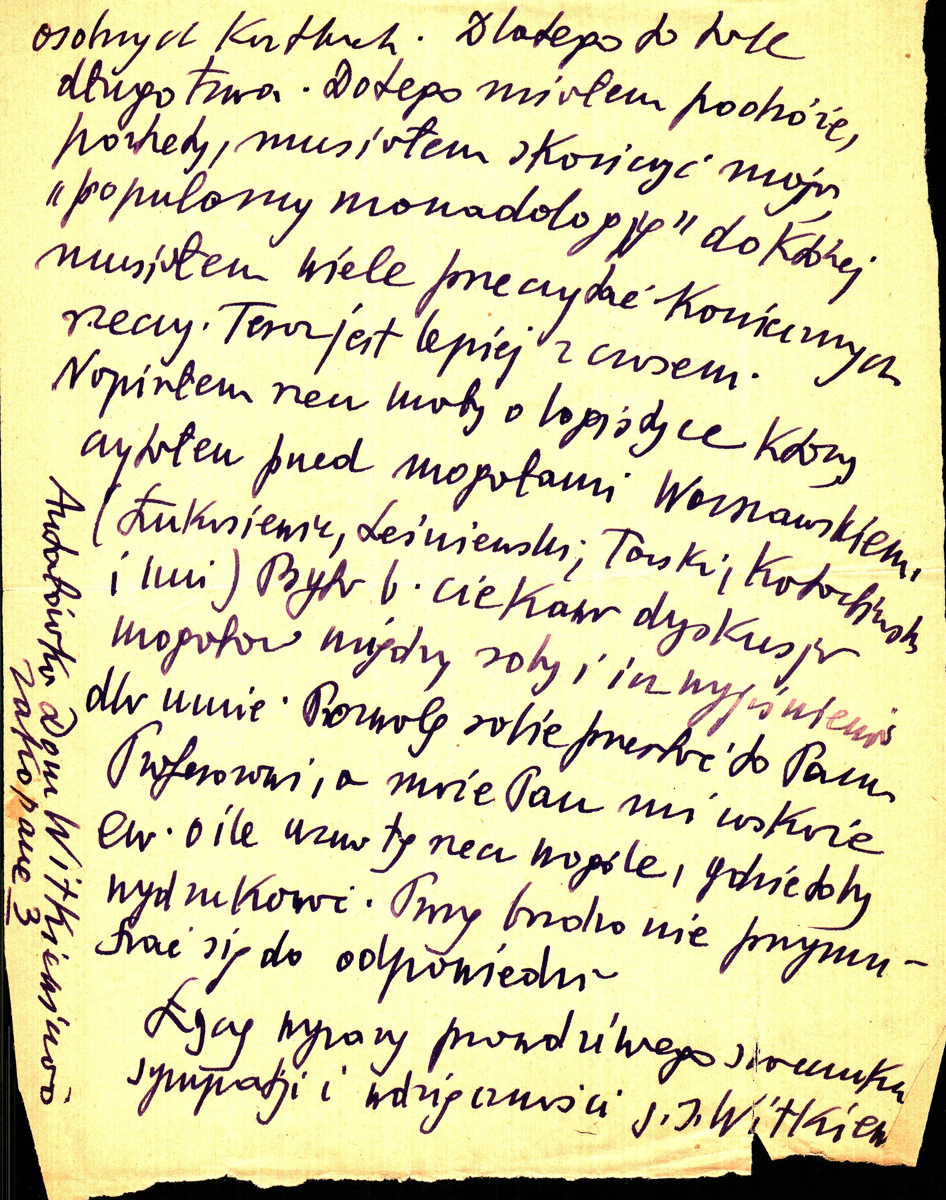 osobnych kartkach. Dlatego to tak
długo trwa. Dotego miałem podróże,
musiałem skończyć moją
"popularną monadologję" do której
musiałem wiele przeczytać koniecznych
rzeczy. Teraz jest lepiej z czasem.
Napisałem rzecz małą o logistyce którą
czytałem przed mogołami Warszawskiemi
(Łukasiewicz, Leśniewski, Tarski, Kotarbiński
i inni) Była b. ciekawa dyskusja
mogołów między sobą i ich wyjaśnienia
dla mnie. Pozwolę sobie przesłać do Pana
Profesorowi, a może Pan mi wskaże
ew. o ile uzna tę rzecz wogóle, gdzie dałoby
wydrukować. Proszę bardzo nie przymu-
szać się do odpowiedzi
Łączę wyrazy prawdziwego szacunku
sympatji i wdzięczności S. I. Witkiew
Antałówka Dom Witkiewiczów
Zakopane 3